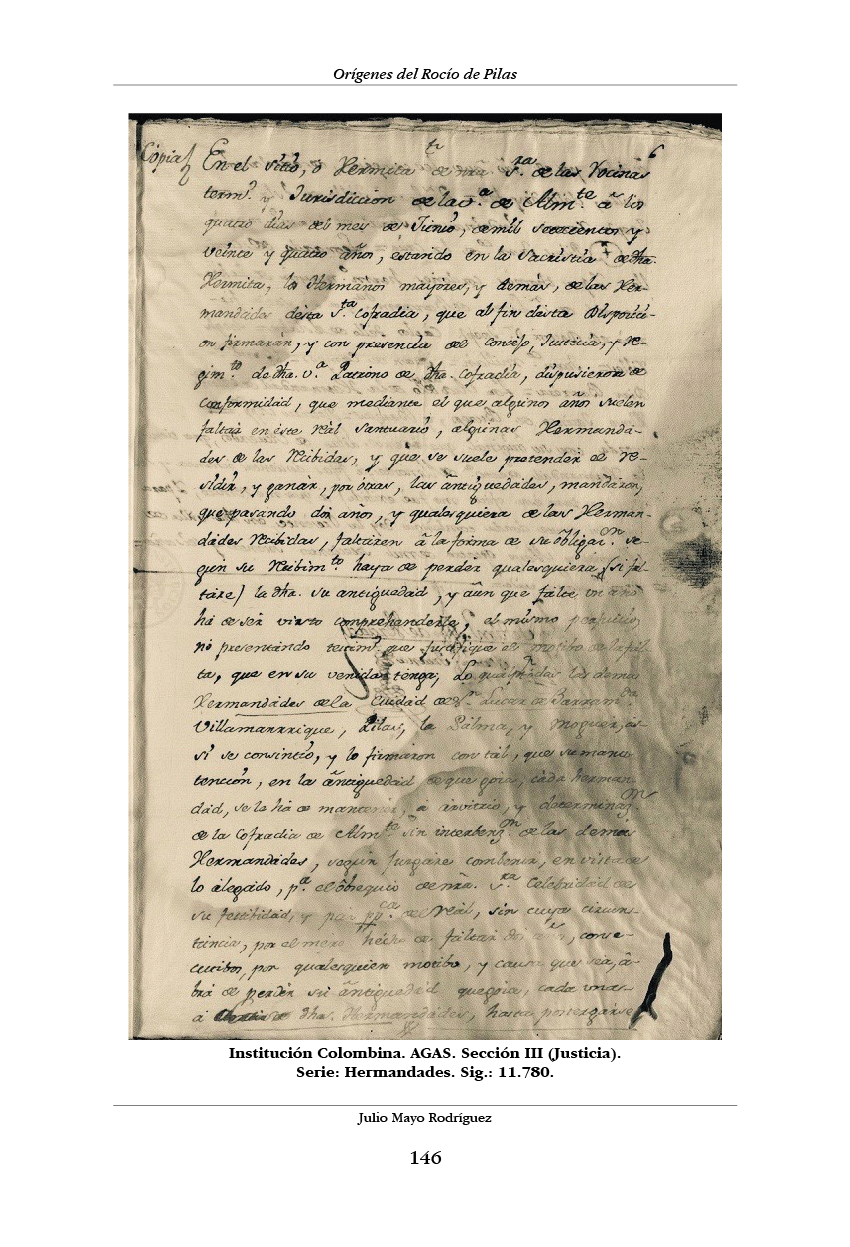 Orígenes del Rocío de Pilas
6
Copia
En el sitio, o Hermita de nra Sra de las Rocinas
termo. y Jurisdiccion de la va. de Almte â los
quatro dias del mes de Junio, de mil setecientos y
veinte y quatro años, estando en la Sacristia de dha.
Hermita, los Hermanos mayores, y demas, de las Her-
mandades desta sta. Cofradia, que al fin desta disposici-
on firmarán, y con presencia del Consejo, Justicia, y re-
gimto. de dha. va. Patrono de dha. Cofradia, dispusieron de
Conformidad, que mediante el que algunos años suelen
faltar en este real Santuario, algunas Hermanda-
des de las Recibidas, y que se suele pretender el re-
sidir, y ganar, por otras, las antiguedades, mandaron,
que pasando dos años, y qualesquiera de las Herman-
dades Recibidas, faltaren â la forma de su obligaion. se
gun su Recibimto. haya de perder qualesquiera (si fal-
tare) la dha. su antiguedad, y aun que falte un año
ha de ser visto comprehenderle, el mismo perjuicio
no presentando testim. que justifique el motibo de la fal
ta, que en su venida tenga, Lo qual las demas
Hermandades de la Ciudad de Sn. Lucar de Barramda
Villamanrrique, Pilas, la Palma, y Moguer, as-
si se consintio, y lo firmaron con tal, que su manu
tención, en la antiguedad de que goza, cada herman
dad, se le ha de mantener, a arvitrio, y determinazon.
de la Cofradia de Almte sin interbenzon. de las demas
Hermandades, segun jusgare combenir, en vista de
lo alegado, pa. el obsequio de nra. Sra. Celebridad de
su festibidad, y real, sin cuya cicuns-
tancia, por el mero hecho de faltar dos años, conse-
cutibos, por qualesquier motibo, y causa que sea, â-
brá de perder su antiguedad que goza, cada una
a dhas. Hermandades, hasta postergarse
Institución Colombina. AGAS. Sección III (Justicia).
Serie: Hermandades. Sig.: 11.780.
Julio Mayo Rodríguez
146